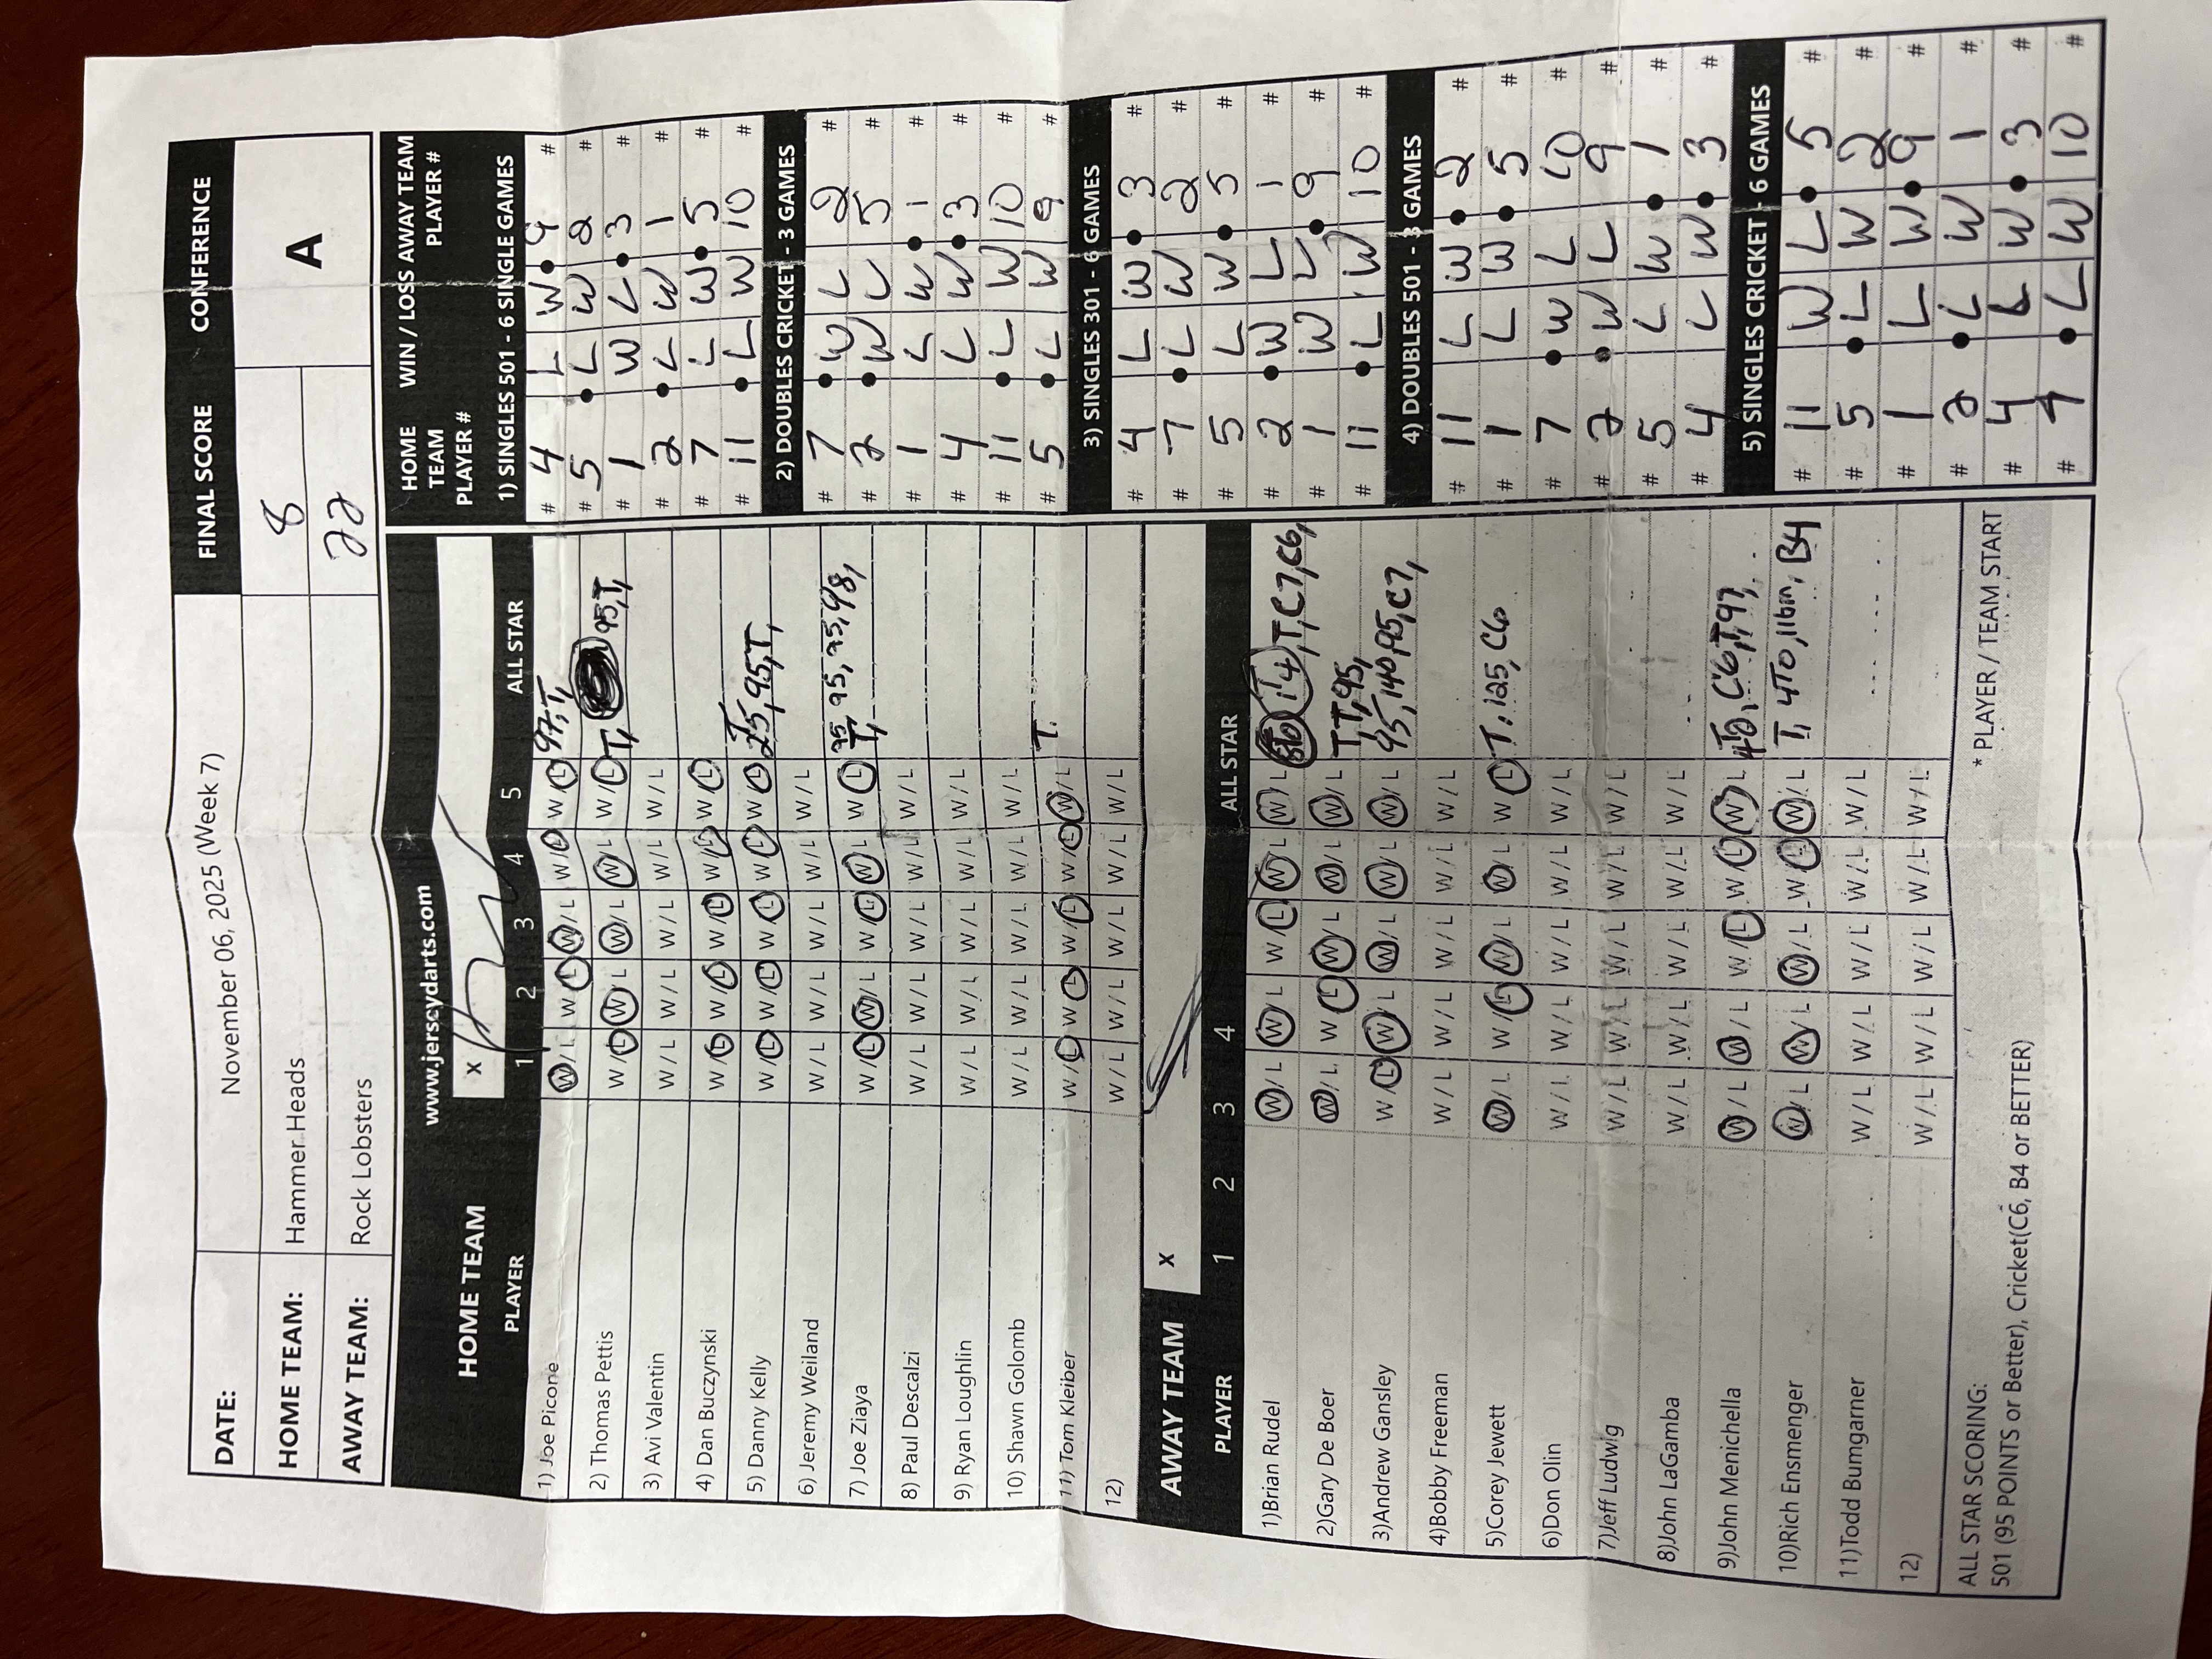 DATE: November 06, 2025 (Week 7) FINAL SCORE CONFERENCE
HOME TEAM: Hammer Heads 8 A
AWAY TEAM: Rock Lobsters 22
www.jerseydarts.com
HOME TEAM X
PLAYER 1 2 3 4 5 ALL STAR
1) Joe Picone W/L W/L W/L W/L W/L 97, T,
2) Thomas Pettis W/L W/L W/L W/L W/L T, 95, T,
3) Avi Valentin W/L W/L W/L W/L W/L
4) Dan Buczynski W/L W/L W/L W/L W/L
5) Danny Kelly W/L W/L W/L W/L W/L T, 95, T,
6) Jeremy Weiland W/L W/L W/L W/L W/L
7) Joe Ziaya W/L W/L W/L W/L W/L T, 95, 95, 98,
8) Paul Descalzi W/L W/L W/L W/L W/L
9) Ryan Loughlin W/L W/L W/L W/L W/L
10) Shawn Golomb W/L W/L W/L W/L W/L
11) Tom Kleiber W/L W/L W/L W/L W/L T.
12) W/L W/L W/L W/L W/L
AWAY TEAM X
PLAYER 1 2 3 4 ALL STAR
1)Brian Rudel W/L W/L W/L W/L W/L T, C7, C6,
2)Gary De Boer W/L W/L W/L W/L W/L T, T, 95,
3)Andrew Gansley W/L W/L W/L W/L W/L 95, 140, 95, C7,
4)Bobby Freeman W/L W/L W/L W/L W/L
5)Corey Jewett W/L W/L W/L W/L W/L T, 125, C6
6)Don Olin W/L W/L W/L W/L W/L
7)Jeff Ludwig W/L W/L W/L W/L W/L
8)John LaGamba W/L W/L W/L W/L W/L
9)John Menichella W/L W/L W/L W/L W/L C6, T, 97,
10)Rich Ensmenger W/L W/L W/L W/L W/L T, 4T0, 116in, B4
11)Todd Bumgarner W/L W/L W/L W/L W/L
12) W/L W/L W/L W/L W/L
ALL STAR SCORING: * PLAYER / TEAM START
501 (95 POINTS or Better), Cricket(C6, B4 or BETTER)
HOME TEAM PLAYER # WIN / LOSS AWAY TEAM PLAYER #
1) SINGLES 501 - 6 SINGLE GAMES
# 4 L W 9 #
# 5 L W 2 #
# 1 W L 3 #
# 2 L W 1 #
# 7 L W 5 #
# 11 L W 10 #
2) DOUBLES CRICKET - 3 GAMES
# 7 W L 2 #
# 2 W L 5 #
# 1 L W 1 #
# 4 L W 3 #
# 11 L W 10 #
# 5 L W 9 #
3) SINGLES 301 - 6 GAMES
# 4 L W 3 #
# 7 L W 2 #
# 5 L W 5 #
# 2 W L 1 #
# 1 W L 9 #
# 11 L W 10 #
4) DOUBLES 501 - 3 GAMES
# 11 L W 2 #
# 1 L W 5 #
# 7 W L 10 #
# 2 W L 9 #
# 5 L W 1 #
# 4 L W 3 #
5) SINGLES CRICKET - 6 GAMES
# 11 W L 5 #
# 5 L W 2 #
# 1 L W 9 #
# 2 L W 1 #
# 4 L W 3 #
# 7 L W 10 #